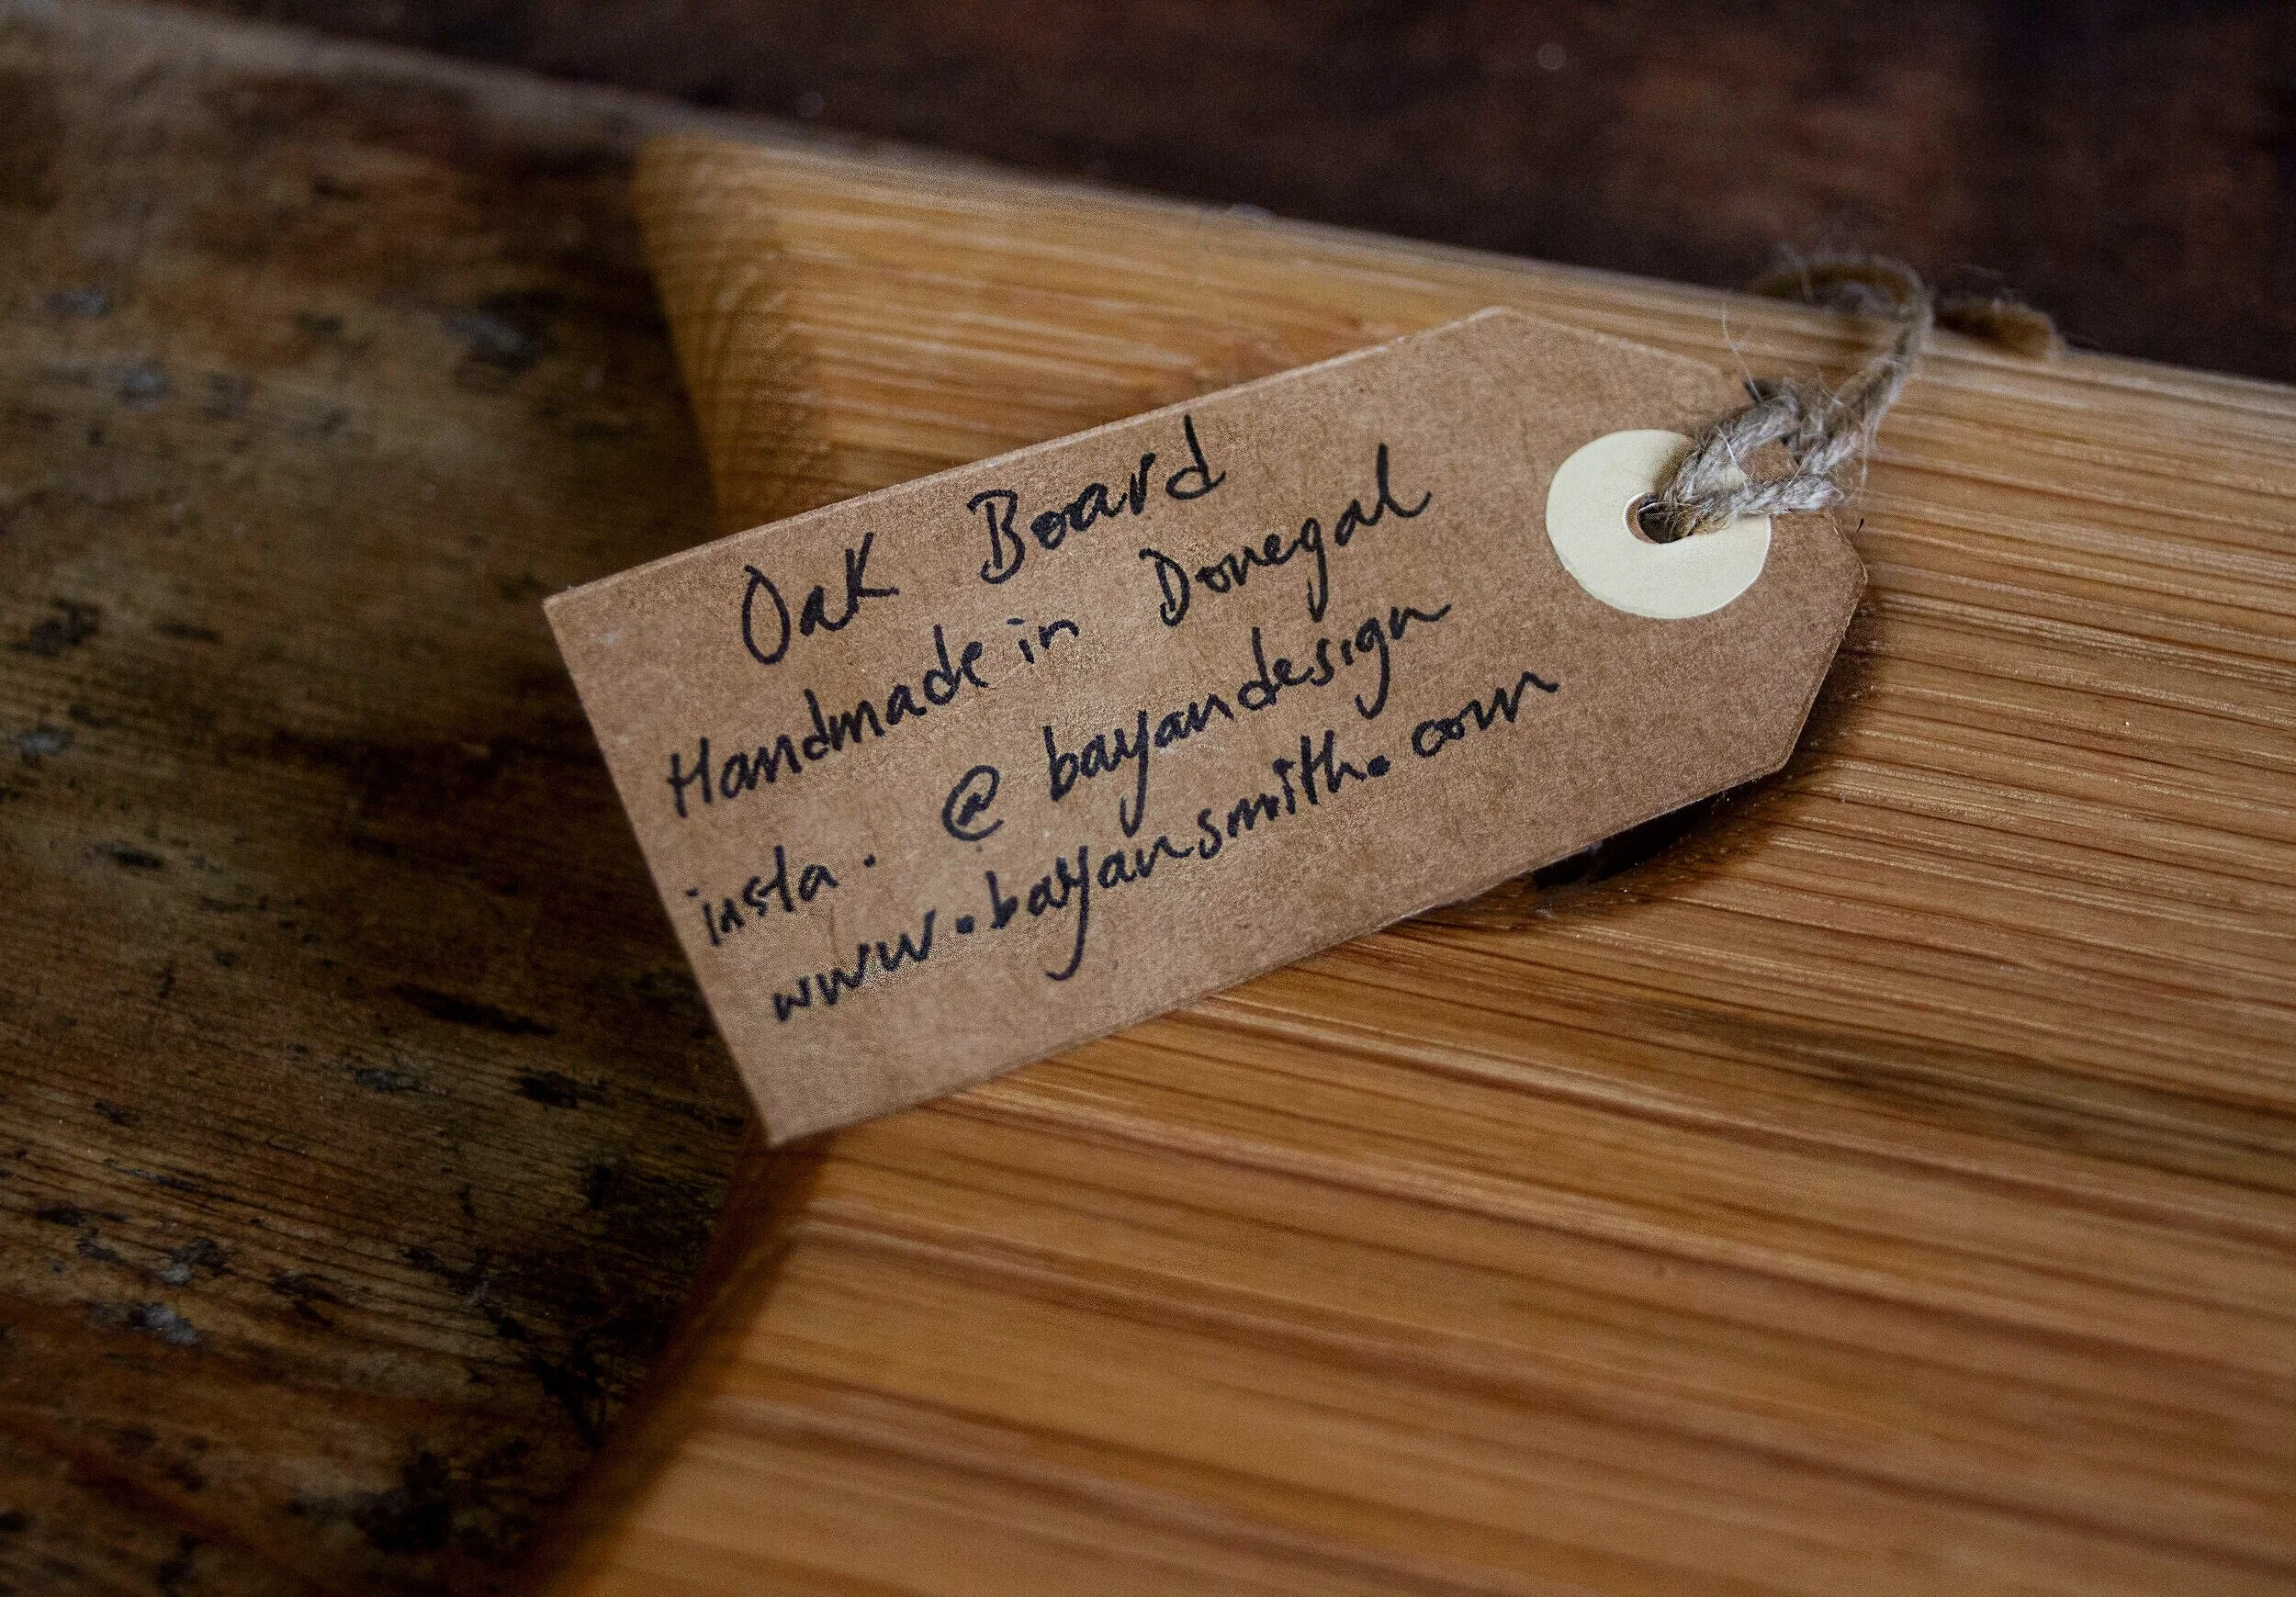 Oak Board
Handmade in Donegal
insta. @bayandesign
www.bayansmith.com